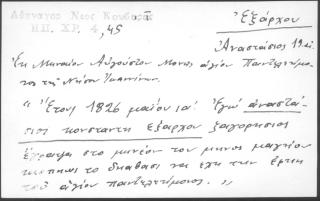 Αθηναγορ Νεος Κουβαρᾶς
ΗΠ. ΧΡ. 4, 45
Ἐξάρχου
Ἀναστάσιος 19 αἰ.
Ἐκ Μηναίου Αὐγούστου Μονῆς ἁγίου Παντελεήμο
νος τῆς Νήσου Ἰωαννίνων.
« Ἔτους 1826 μαΐου ια΄ Ἐγώ ἀναστά
σιος κονσταντη ἐξαρχου ζαγορησιος
ἔγραψα στο μηνέον του μηνος μαγίου
διαβασι να εχη την ερτκη
τοῦ ἁγίου παντελεήμονος. »